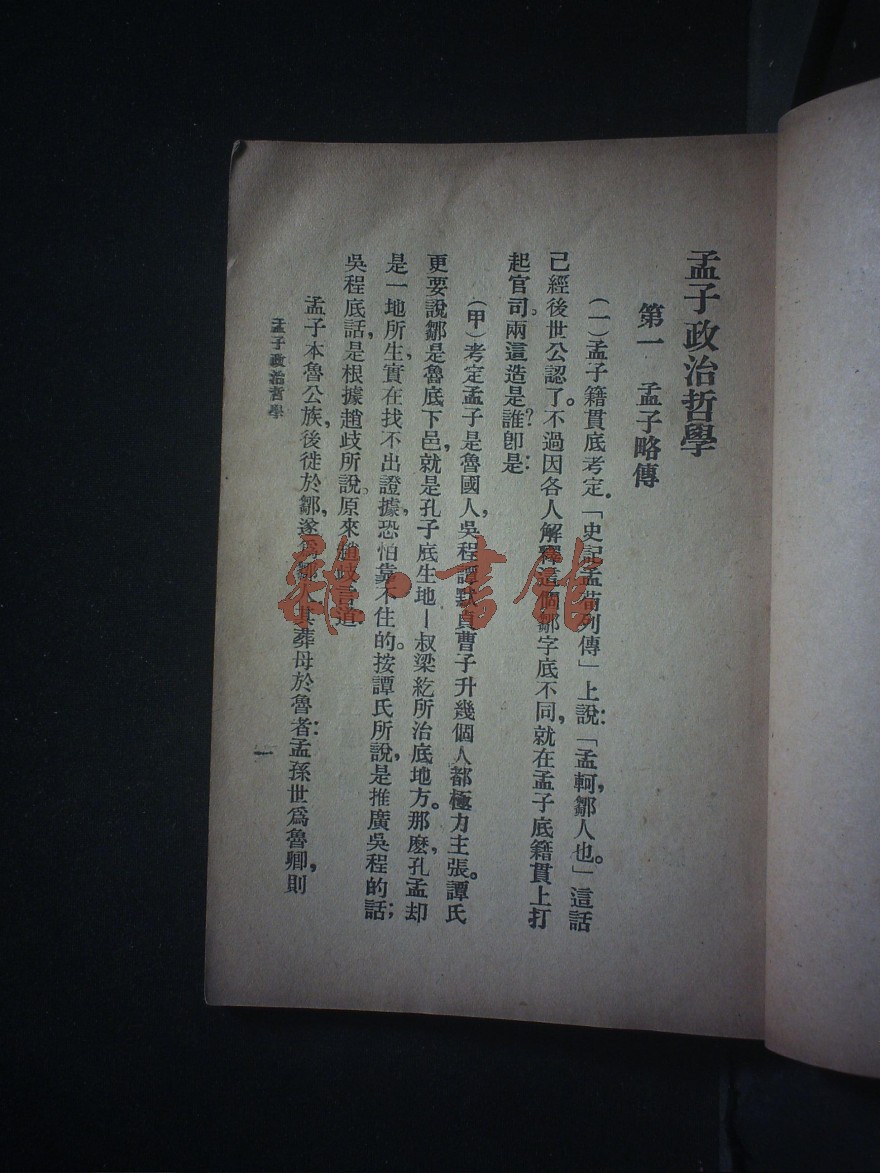 孟子政治哲學
第一　孟子略傳
（一）孟子籍貫底考定。「史記孟荀列傳」上說：「孟軻，鄒人也。」這話
已經後世公認了。不過因各人解釋這個鄒字底不同，就在孟子底籍貫上打
起官司。兩造是誰？卽是：
（甲）考定孟子是魯國人，吳程譚默貞曹子升幾個人都極力主張。譚氏
更要說鄒是魯底下邑，就是孔子底生地—叔梁紇所治底地方。那麽，孔孟却
是一地所生，實在找不出證據，恐怕靠不住的。按譚氏所說，是推廣吳程的話；
吳程底話，是根據趙歧所說。原來趙歧言道：
孟子本魯公族，後徙於鄒，遂爲鄒人。其葬母於魯者：孟孫世爲魯卿，則
孟子政治哲學
一
雜·書館